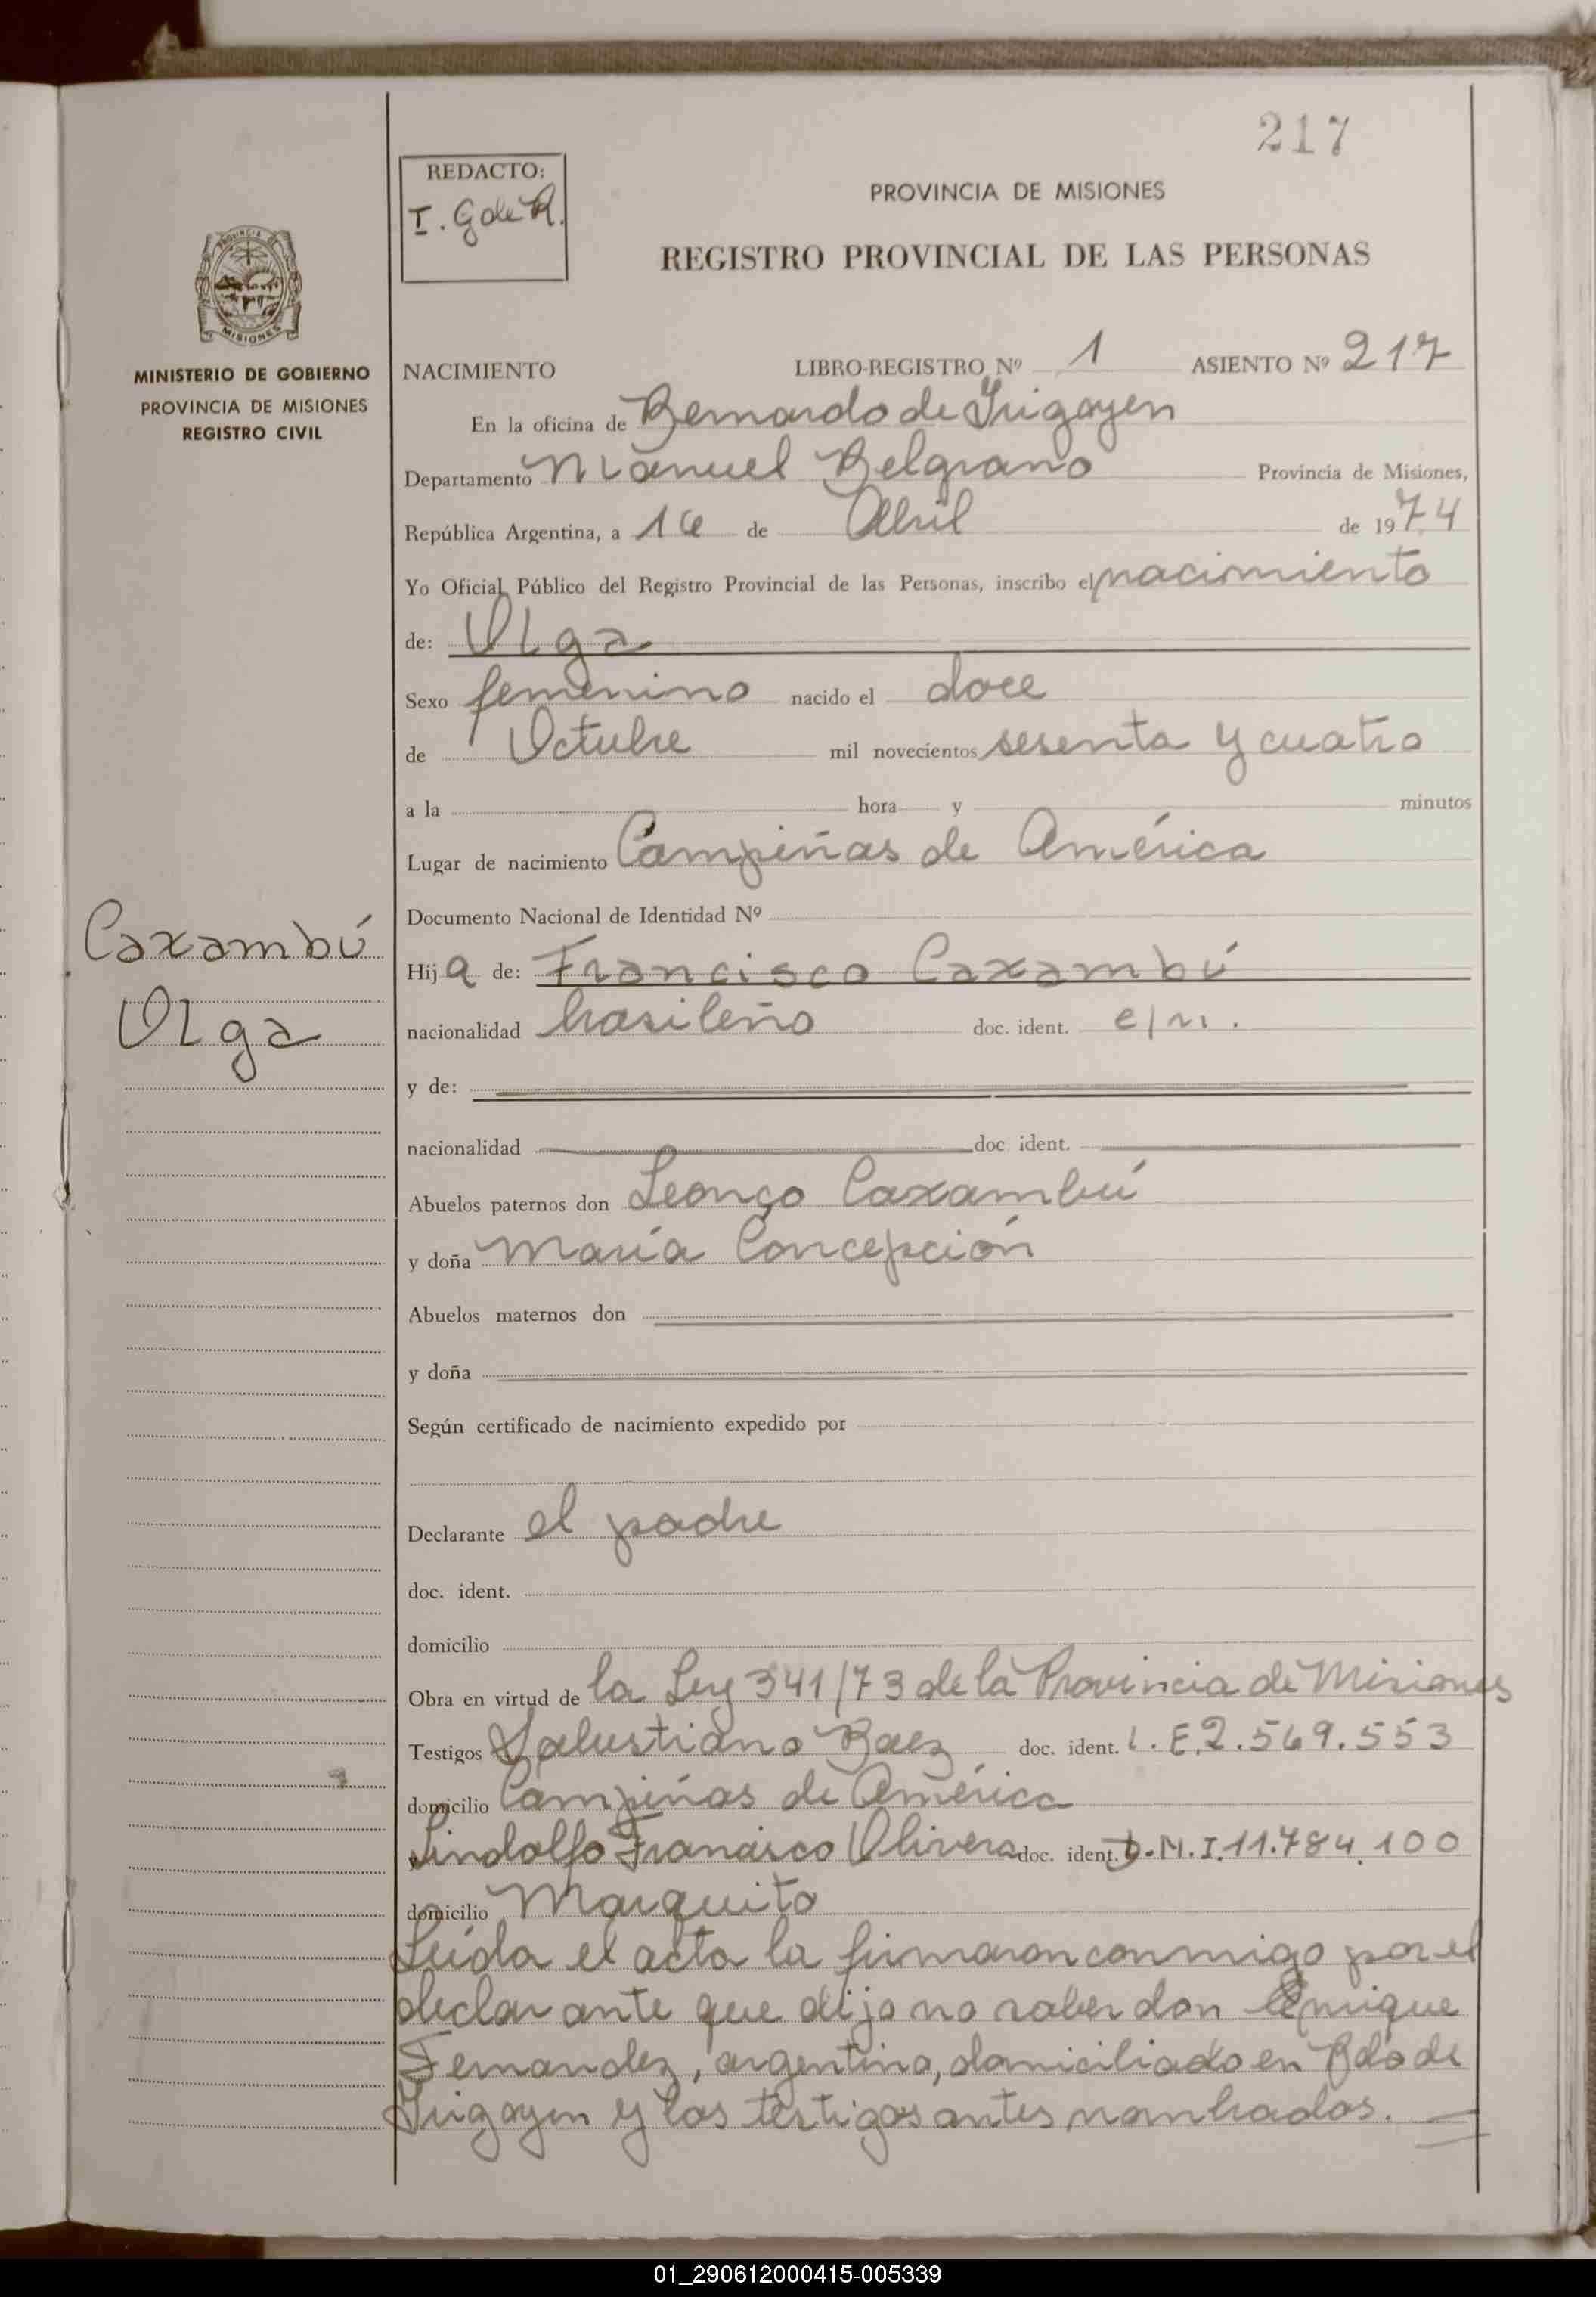 217
REDACTO:
I. G de R.
PROVINCIA DE MISIONES
REGISTRO PROVINCIAL DE LAS PERSONAS
MISIONES
MINISTERIO DE GOBIERNO
PROVINCIA DE MISIONES
REGISTRO CIVIL
NACIMIENTO LIBRO-REGISTRO Nº 1 ASIENTO Nº 217
En la oficina de Bernardo de Irigoyen
Departamento Manuel Belgrano Provincia de Misiones,
República Argentina, a 16 de Abril de 1974
Yo Oficial Público del Registro Provincial de las Personas, inscribo el nacimiento
de: Olga
Sexo femenino nacido el doce
de Octubre mil novecientos sesenta y cuatro
a la hora y minutos
Lugar de nacimiento Campiñas de América
Documento Nacional de Identidad Nº
Caxambú
Olga
Hija de: Francisco Caxambú
nacionalidad brasileño doc. ident.
y de:
nacionalidad doc ident.
Abuelos paternos don Leonço Caxambú
y doña María Concepción
Abuelos maternos don
y doña
Según certificado de nacimiento expedido por
Declarante el padre
doc. ident.
domicilio
Obra en virtud de la Ley 341/73 de la Provincia de Misiones
Testigos Salustiano Baez doc. ident. L.E.2.569.553
domicilio Campiñas de América
y Lindolfo Francisco Olivera doc. ident. D.N.I.11.784.100
domicilio Marquito
Leída el acta la firmaron conmigo por el
declarante que dijo no saber don Enrique
Fernandez, argentino, domiciliado en Bdo de
Irigoyen y los testigos antes nombrados.
01_290612000415-005339